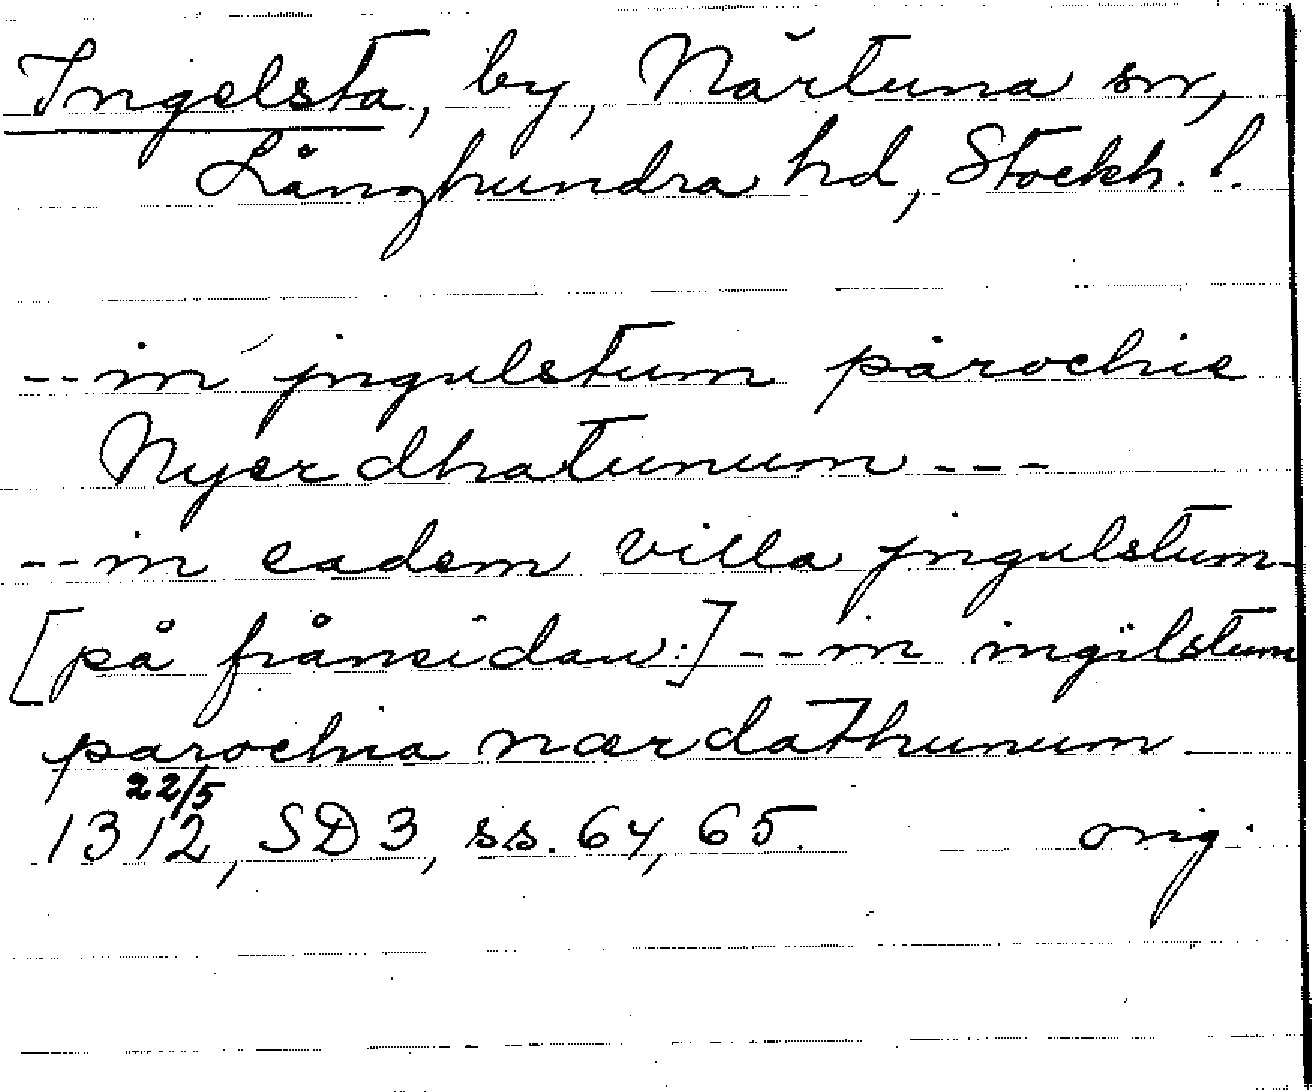 Ingelsta, by, Närtuna sn,
Långhundra hd, Stockh. l.
--in jngulstum parochie
Nyerdhatunum ---
--in eadem villa jngulstum-
[på frånsidan:] --in ingilstum
parochia nærdathunum
22/5
1312, SD 3, ss. 64, 65. orig.